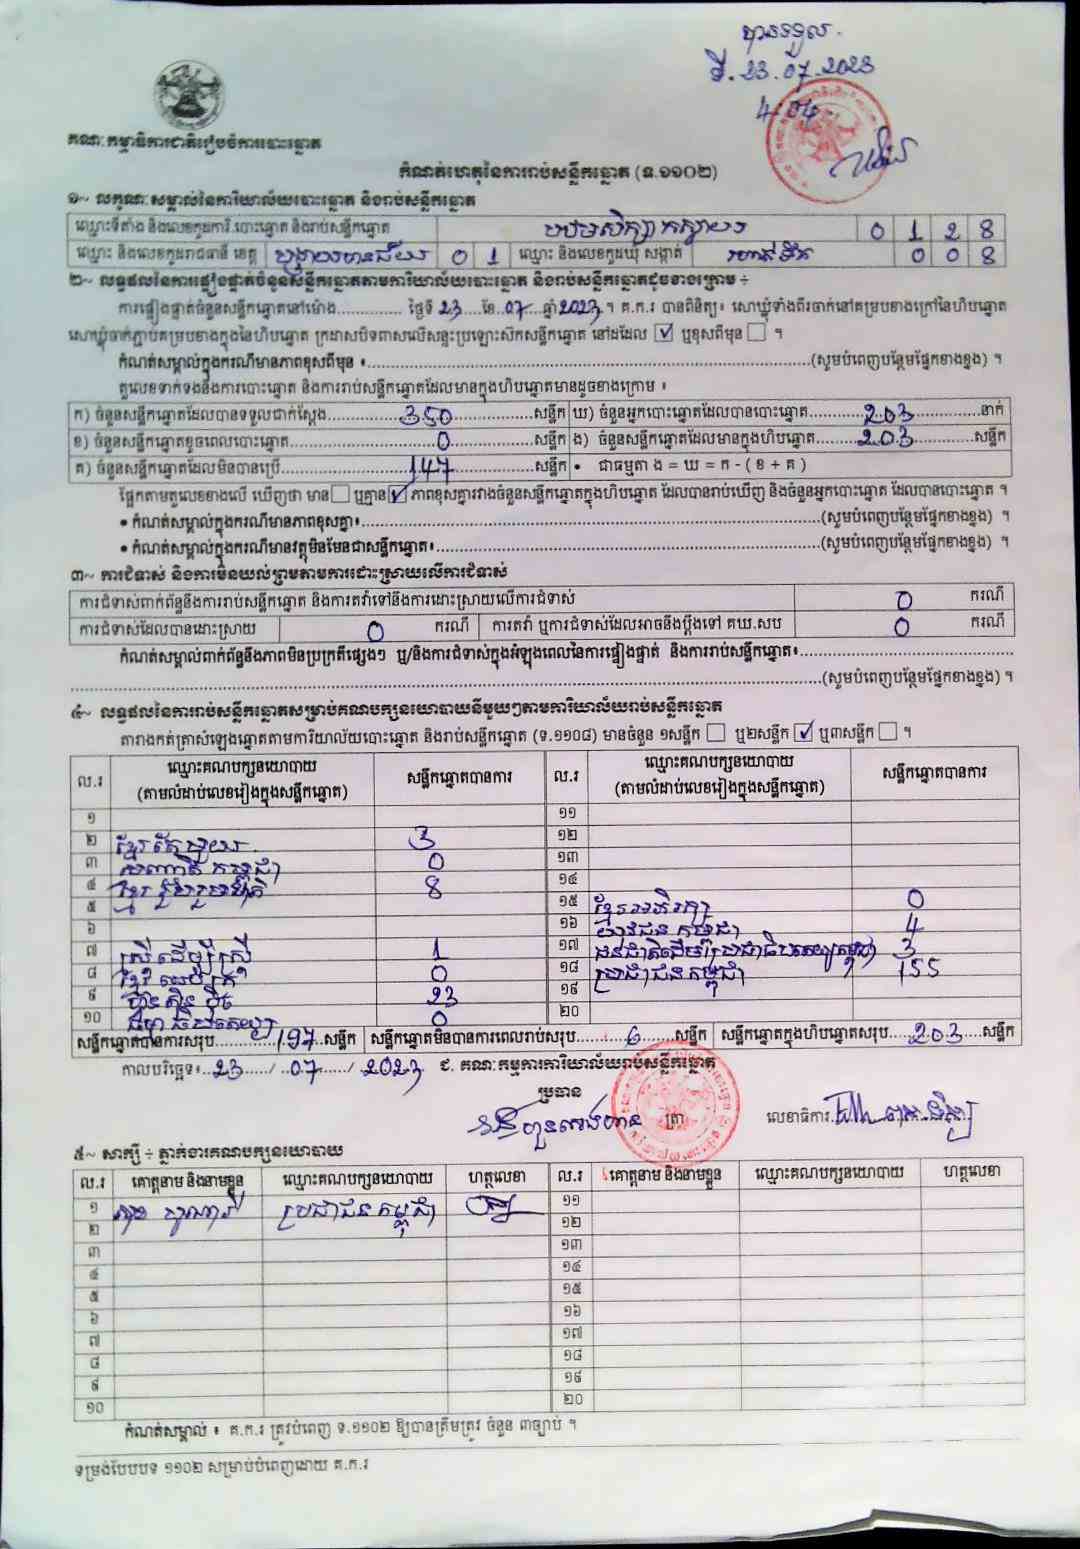 បានទទួល
ទី. 23.07.2023
4:04
គណៈកម្មាធិការជាតិរៀបចំការបោះឆ្នោត
កំណត់ហេតុនៃការរាប់សន្លឹកឆ្នោត (ទ.១១០២)
១~ លក្ខណៈសម្គាល់នៃការិយាល័យបោះឆ្នោត និងរាប់សន្លឹកឆ្នោត
ឈ្មោះទីតាំង និងលេខកូដការិ.បោះឆ្នោត និងរាប់សន្លឹកឆ្នោត បឋមសិក្សា 0 1 2 8
ឈ្មោះ និងលេខកូដរាជធានី ខេត្ត បន្ទាយមានជ័យ 0 1 ឈ្មោះ និងលេខកូដឃុំ សង្កាត់ 0 0 8
២~ លទ្ធផលនៃការផ្ទៀងផ្ទាត់ចំនួនសន្លឹកឆ្នោតតាមការិយាល័យបោះឆ្នោត និងរាប់សន្លឹកឆ្នោតដូចខាងក្រោម ÷
ការផ្ទៀងផ្ទាត់ចំនួនសន្លឹកឆ្នោតនៅម៉ោង............... ថ្ងៃទី 23 ....ខែ..07....ឆ្នាំ2023.។ គ.ក.រ បានពិនិត្យ៖ សោឃ្លុំទាំងពីរចាក់នៅគម្របខាងក្រៅនៃហិបឆ្នោត
សោឃ្លុំចាក់ភ្ជាប់គម្របខាងក្នុងនៃហិបឆ្នោត ក្រដាសបិទពាសលើសន្ទះប្រឡោះស៊កសន្លឹកឆ្នោត នៅដដែល ☑ ឬខុសពីមុន ☐ ។
កំណត់សម្គាល់ក្នុងករណីមានភាពខុសពីមុន ៖...............(សូមបំពេញបន្ថែមផ្នែកខាងខ្នង) ។
តួលេខទាក់ទងនឹងការបោះឆ្នោត និងការរាប់សន្លឹកឆ្នោតដែលមានក្នុងហិបឆ្នោតមានដូចខាងក្រោម ៖
ក) ចំនួនសន្លឹកឆ្នោតដែលបានទទួលជាក់ស្តែង...............350...............សន្លឹក ឃ) ចំនួនអ្នកបោះឆ្នោតដែលបានបោះឆ្នោត..........203...............នាក់
ខ) ចំនួនសន្លឹកឆ្នោតខូចពេលបោះឆ្នោត...............0...............សន្លឹក ង) ចំនួនសន្លឹកឆ្នោតដែលមានក្នុងហិបឆ្នោត..........203...............សន្លឹក
គ) ចំនួនសន្លឹកឆ្នោតដែលមិនបានប្រើ...............147...............សន្លឹក • ជាធម្មតា ង = ឃ = ក - ( ខ + គ )
ផ្អែកតាមតួលេខខាងលើ ឃើញថា មាន ☐ ឬគ្មាន ☑ ភាពខុសគ្នារវាងចំនួនសន្លឹកឆ្នោតក្នុងហិបឆ្នោត ដែលបានរាប់ឃើញ និងចំនួនអ្នកបោះឆ្នោត ដែលបានបោះឆ្នោត ។
• កំណត់សម្គាល់ក្នុងករណីមានភាពខុសគ្នា៖...............(សូមបំពេញបន្ថែមផ្នែកខាងខ្នង) ។
• កំណត់សម្គាល់ក្នុងករណីមានវត្ថុមិនមែនជាសន្លឹកឆ្នោត៖...............(សូមបំពេញបន្ថែមផ្នែកខាងខ្នង) ។
៣~ ការជំទាស់ និងការមិនយល់ព្រមតាមការដោះស្រាយលើការជំទាស់
ការជំទាស់ពាក់ព័ន្ធនឹងការរាប់សន្លឹកឆ្នោត និងការតវ៉ាទៅនឹងការដោះស្រាយលើការជំទាស់ 0 ករណី
ការជំទាស់ដែលបានដោះស្រាយ 0 ករណី ការតវ៉ា ឬការជំទាស់ដែលអាចនឹងប្តឹងទៅ គឃ.សប 0 ករណី
កំណត់សម្គាល់ពាក់ព័ន្ធនឹងភាពមិនប្រក្រតីផ្សេងៗ ឬ/និងការជំទាស់ក្នុងអំឡុងពេលនៃការផ្ទៀងផ្ទាត់ និងការរាប់សន្លឹកឆ្នោត៖...............
...............(សូមបំពេញបន្ថែមផ្នែកខាងខ្នង) ។
៤~ លទ្ធផលនៃការរាប់សន្លឹកឆ្នោតសម្រាប់គណបក្សនយោបាយនីមួយៗតាមការិយាល័យរាប់សន្លឹកឆ្នោត
តារាងកត់ត្រាសំឡេងឆ្នោតតាមការិយាល័យបោះឆ្នោត និងរាប់សន្លឹកឆ្នោត (ទ.១១០៨) មានចំនួន ១សន្លឹក ☐ ឬ២សន្លឹក ☑ ឬ៣សន្លឹក ☐ ។
ល.រ ឈ្មោះគណបក្សនយោបាយ សន្លឹកឆ្នោតបានការ ល.រ ឈ្មោះគណបក្សនយោបាយ សន្លឹកឆ្នោតបានការ
(តាមលំដាប់លេខរៀងក្នុងសន្លឹកឆ្នោត) (តាមលំដាប់លេខរៀងក្នុងសន្លឹកឆ្នោត)
១ ១១
២ ខ្មែរតែមួយ 3 ១២
៣ សញ្ជាតិកម្ពុជា 0 ១៣
៤ ខ្មែររួបរួមជាតិ 8 ១៤
៥ ១៥ ខ្មែរអភិរក្ស 0
៦ ១៦ យុវជនកម្ពុជា 4
៧ ស្រីដើម្បីស្រី 1 ១៧ ជនជាតិដើមប្រជាធិបតេយ្យកម្ពុជា 3
៨ 0 ១៨ ប្រជាជនកម្ពុជា 155
៩ ហ៊្វុនស៊ិនប៉ិច 23 ១៩
១០ 0 ២០
សន្លឹកឆ្នោតបានការសរុប...............197..សន្លឹក សន្លឹកឆ្នោតមិនបានការពេលរាប់សរុប........6.......សន្លឹក សន្លឹកឆ្នោតក្នុងហិបឆ្នោតសរុប.....203.....សន្លឹក
កាលបរិច្ឆេទ៖..23...../..07....../..2023 ជ. គណៈកម្មការការិយាល័យរាប់សន្លឹកឆ្នោត
ប្រធាន
ត្រា
លេខាធិការ
៥~ សាក្សី ÷ ភ្នាក់ងារគណបក្សនយោបាយ
ល.រ គោត្តនាម និងនាមខ្លួន ឈ្មោះគណបក្សនយោបាយ ហត្ថលេខា ល.រ គោត្តនាម និងនាមខ្លួន ឈ្មោះគណបក្សនយោបាយ ហត្ថលេខា
១ ប្រជាជនកម្ពុជា ១១
២ ១២
៣ ១៣
៤ ១៤
៥ ១៥
៦ ១៦
៧ ១៧
៨ ១៨
៩ ១៩
១០ ២០
កំណត់សម្គាល់ ៖ គ.ក.រ ត្រូវបំពេញ ទ.១១០២ ឱ្យបានត្រឹមត្រូវ ចំនួន ៣ច្បាប់ ។
ទម្រង់បែបបទ ១១០២ សម្រាប់បំពេញដោយ គ.ក.រ